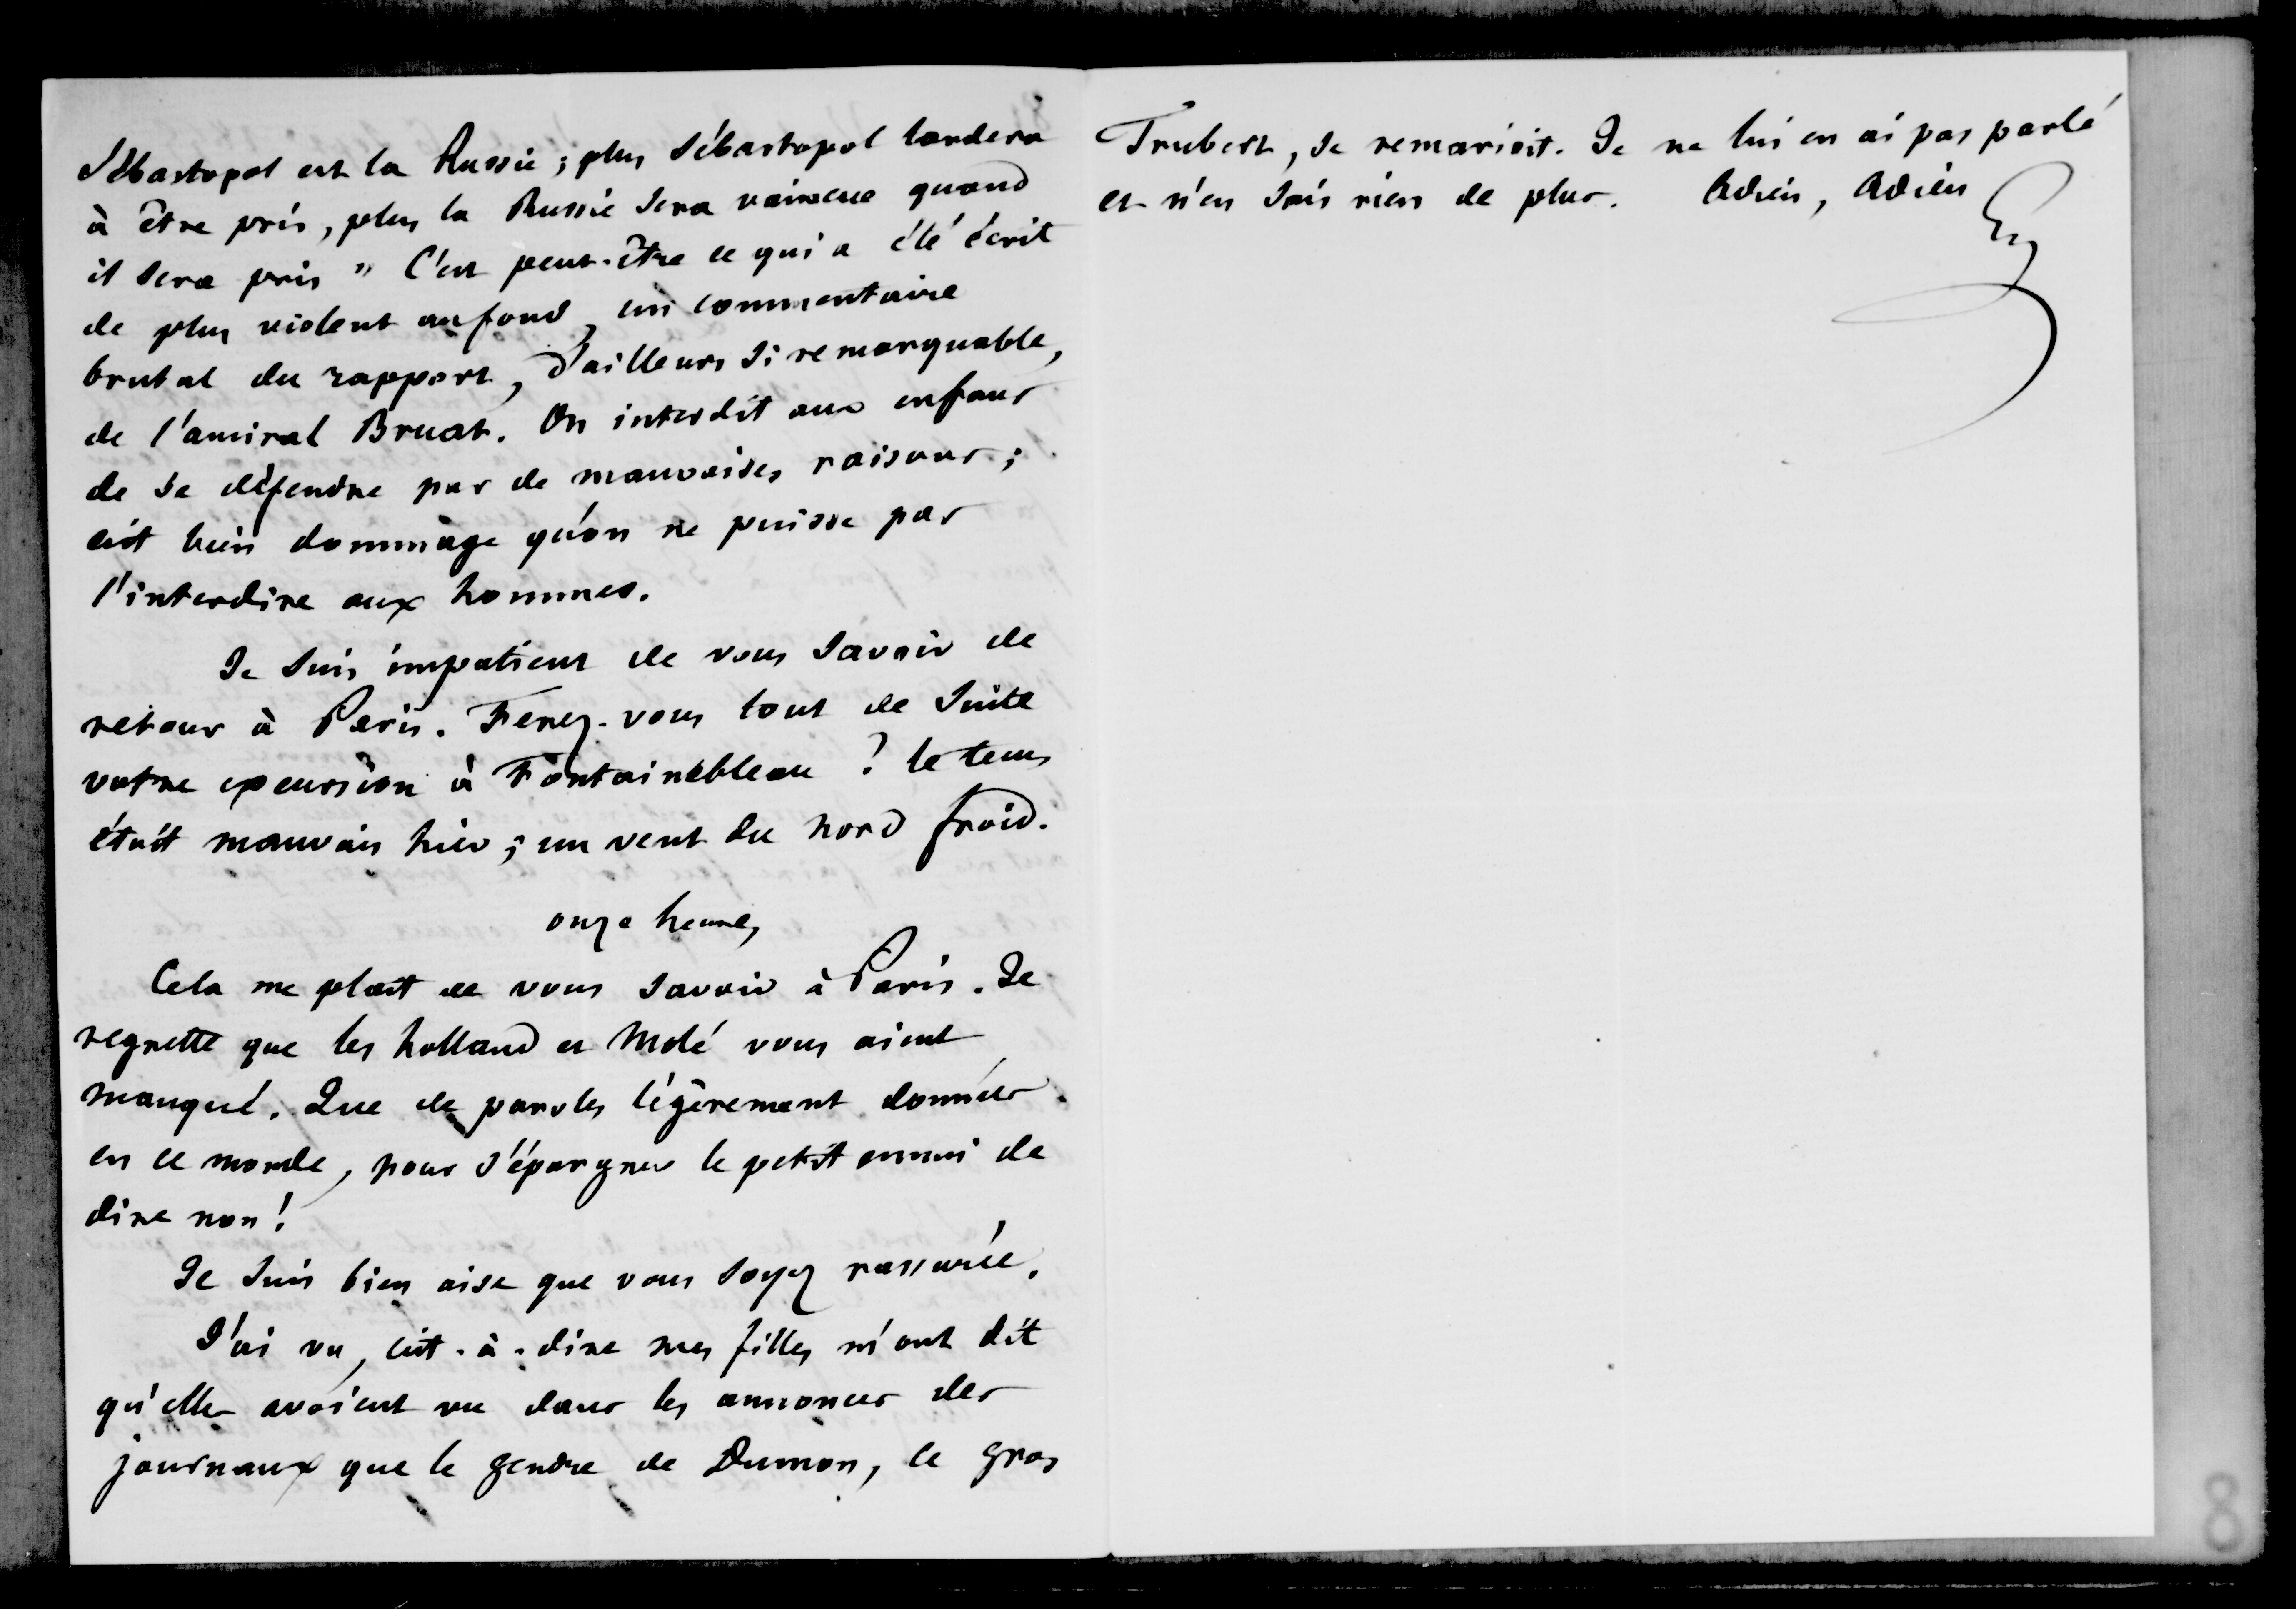 Sébastopol est la Russie ; plus Sébastopol tardera
à être pris, plus la Russie sera vaincue quand
il sera pris " C'est peut-être ce qui a été écrit
de plus violent au fond, un commentaire
brutal du rapport, d'ailleurs si remarquable,
de l'amiral Bruat. On interdit aux enfans
de se défendre par de mauvaises raisons ;
c'est bien dommage qu'on ne puisse pas
l'interdire aux hommes.
Je suis impatient de vous savoir de
retour à Paris. Ferez-vous tout de suite
votre excursion à Fontainebleau ? le tems
était mauvais hier ; un vent du nord froid.
onze heures
Cela me plaît de vous savoir à Paris. Je
regrette que les holland et Molé vous aient
manqué. Que de paroles légèrement données
en ce monde, pour s'épargner le petit ennui de
dire non !
Je suis bien aise que vous soyez rassurée.
J'ai vu, c'est-à-dire mes filles m'ont dit
qu'elles avoient vu dans les annonces des
journaux que le gendre de Dumon, le gros
Trubert, se remarioit. Je ne lui en ai pas parlé
et n'en sais rien de plus. Adieu, Adieu
8